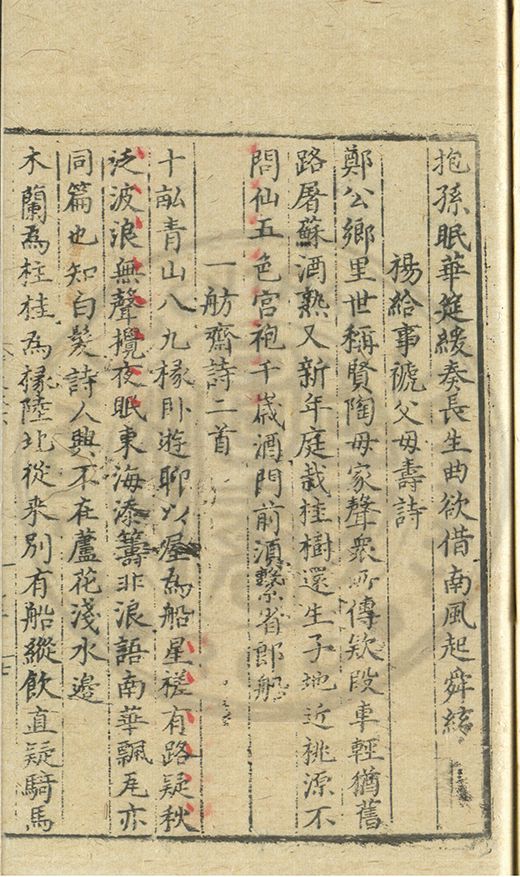 抱孫眠華筵緩奏長生曲欲借南風起舜絃
楊給事號父母壽詩
鄭公鄉里世稱賢陶母家聲衆所傳欵段車輕猶舊
路屠蘇酒熟又新年庭栽桂樹還生子地近桃源不
問仙五色宫袍千歲酒門前湏繫省郎船
一舫齋詩二首
十畝青山八九椽卧遊聊以屋為船星槎有路疑秋
泛波浪無聲攪夜眠東海添籌非浪語南華飄瓦亦
同篇也知白髪詩人興不在蘆花淺水邉
木蘭為柱桂為椽陸地從来别有船縱飲直疑騎馬